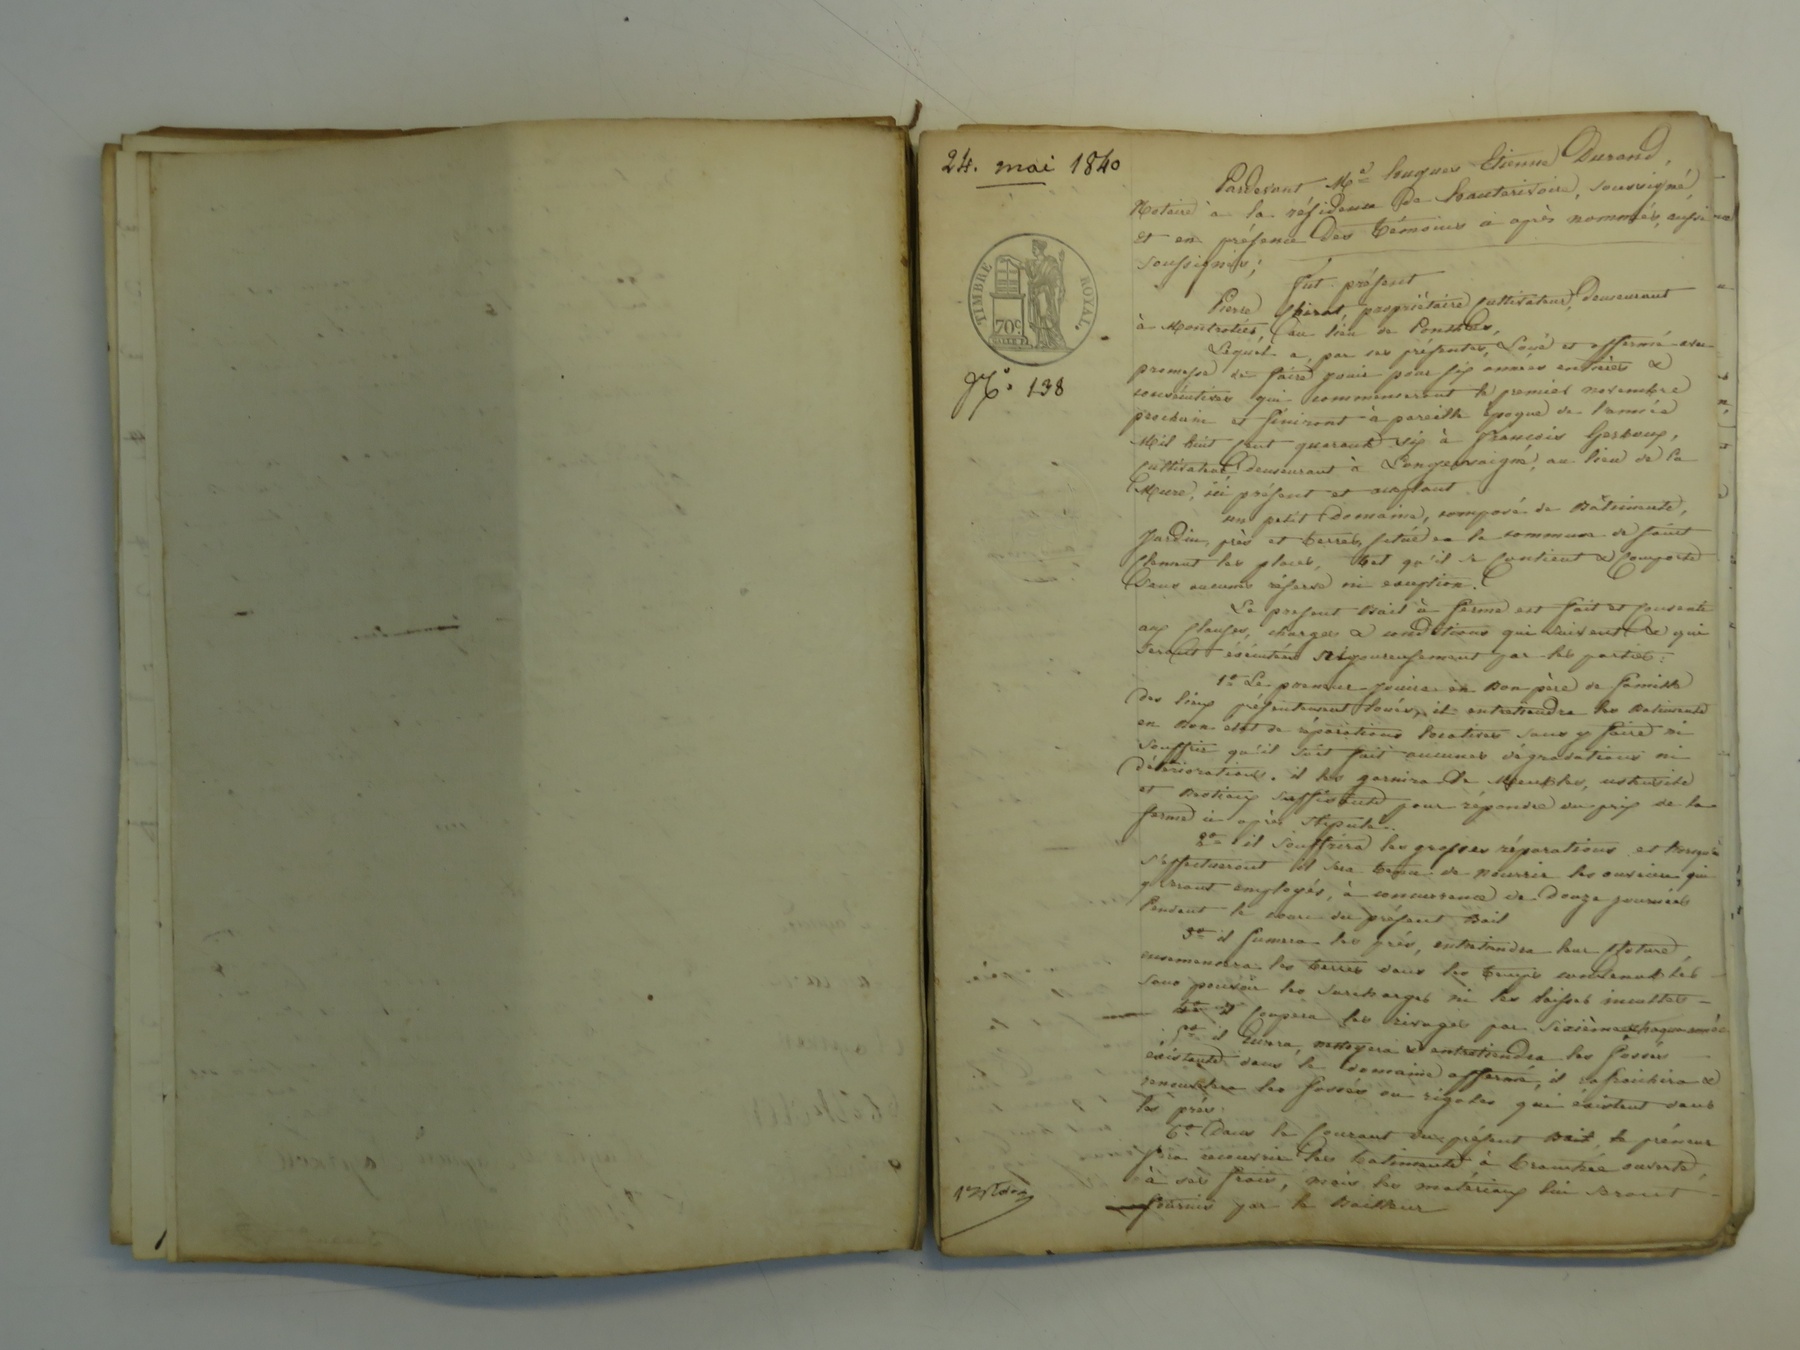 24. mai 1840
TIMBRE ROYAL
70c.
N.° 138
Pardevant M.e hugues Etienne Durand,
Notaire à la résidence de hauterivoire, soussigné
et en présence des témoins ci après nommés, aussi
soussignés;
fut présent
Pierre propriétaire cultivateur, demeurant
à Montrotier, au lieu de
Lequel a, par ses présentes, Loué et affermé avec
promesse de faire jouir pour six années entières &
consécutives qui commenceront le premier novembre
prochain et finiront à pareille époque de l'année
Mil huit cent quarante six à François
Cultivateur demeurant à Longessaigne, au lieu de la
Mure, ici présent et acceptant
un petit Domaine, composé de Bâtiments,
Jardin, prés et terres, situé en la commune de Saint
Clement les places, tel qu'il se Contient & Comporte
Sans aucune réserve ni exception.
Le present Bail à ferme est fait et consenti
aux clauses, charges & conditions qui suivent & qui
seront éxécutées rigoureusement par les parties:
1° Le preneur jouira en Bon père de famille
des lieux présentement loués, il entretiendra les Batiments
en Bon etat de réparations locatives sans y faire ni
souffrir qu'il soit fait aucunes dégradations ni
déteriorations. il les garnira de Meubles, ustensiles
et Bestiaux suffisants pour répondre du prix de la
ferme ci après stipulé.
2° il souffrira les grosses réparations et lorsqu'elles
s'effectueront il sera tenu de nourrir les ouvriers qui
y seront employés, à concurrence de Douze journées
Pendant le cours du présent Bail
3° il fumera les prés, entretiendra leur cloture,
ensemencera les terres dans les temps convenables
sans pouvoir les surcharger ni les laisser incultes
4° il coupera les rivages par sixième chaque année
5° il curera, nettoyera & entretiendra les fossés
éxistants dans le domaine affermé, il rafraichira &
renouvellera les fossés ou rigoles qui éxistent dans
les prés.
6° Dans le Courant du présent Bail, le préneur
fera recouvrir les batiments à tranchée ouverte,
à ses frais, mais les matériaux lui seront
fournis par le Bailleur